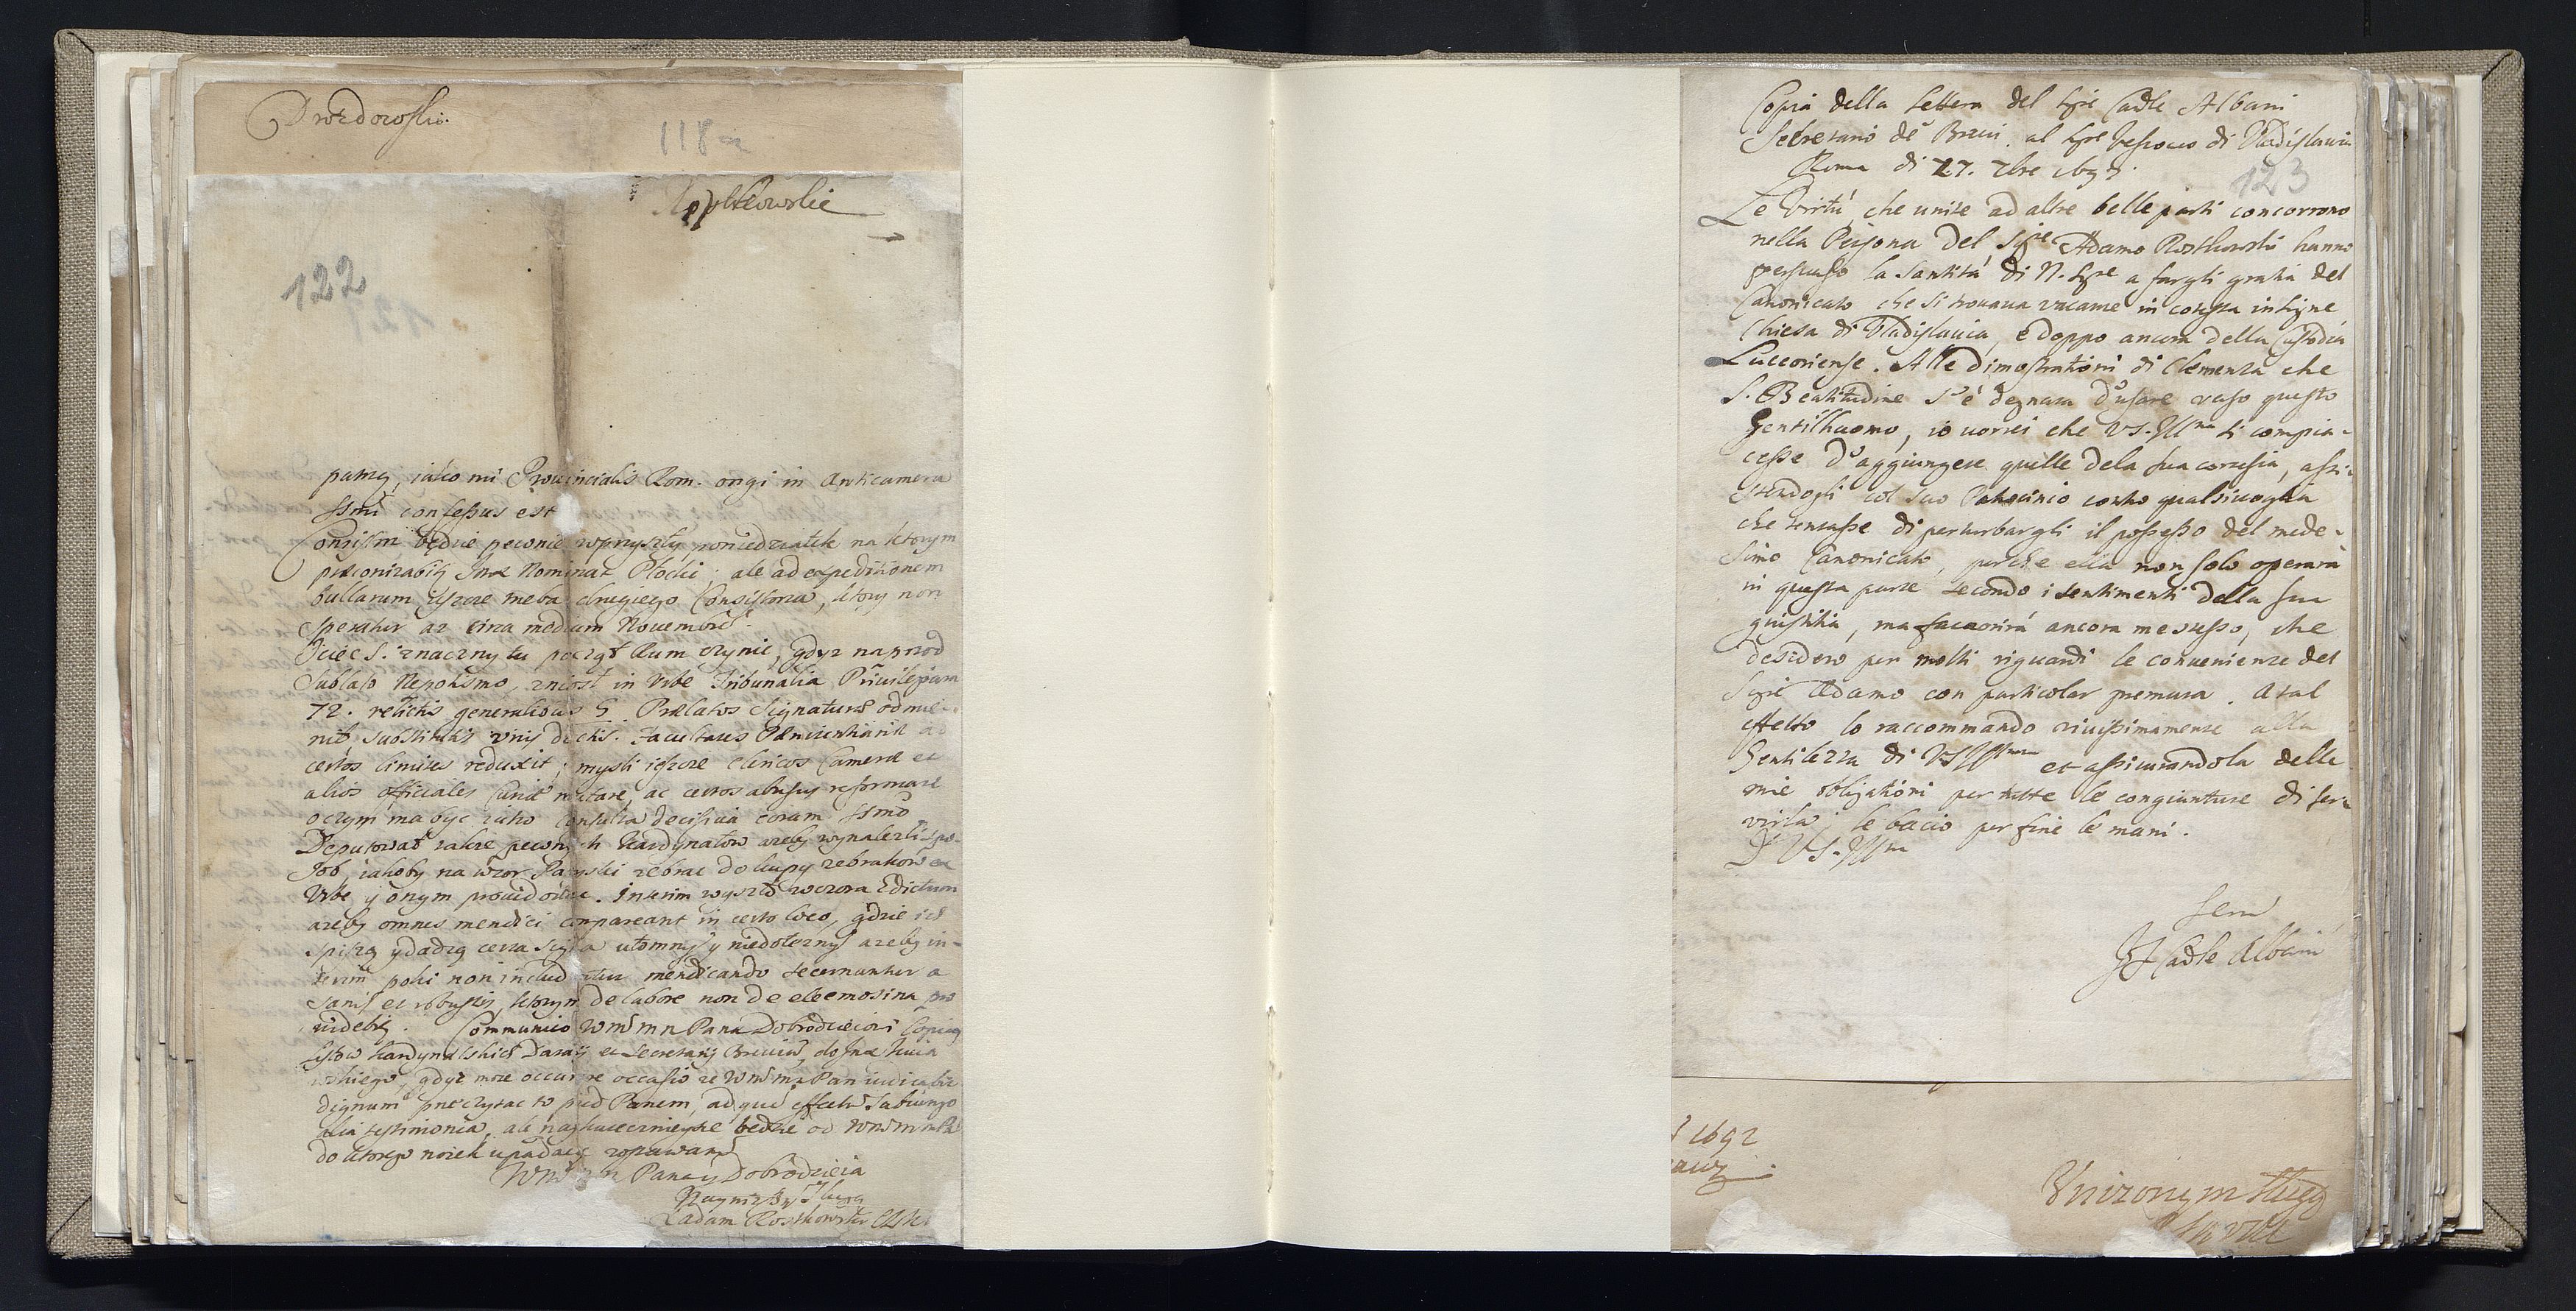 Drozdowski.
118a
122
pamą, iako mi Prouincialis Rom. ongi in Anticamera
SSmi confessus est
Consistm będzie pewnie wprzyszły poniedziałek na ktorym
præconizabit Jmx Nominat Płocki; ale ad expeditionem
bullarum ieszcze trzeba drugiego Consistorza, ktory non
speratur az circa medium Nouembris.
Ociec S. znaczny tu począł Rum czynic, gdyz naprzod
sublato Nepotismo, zniosł in Vrbe Tribunalia
72. relictis generalibus 5. Prælatos Signaturæ odmie-
nił, substitutis
certos limites reduxit; mysli ieszcze clericos Cameræ et
alios officiales Curiæ mutare, ac certos abusus reformare
oczym ma byc iako consulta decisiua coram SSmo
Deputował takze pewnych Kardynałow azeby wynalezli spo-
sob, iakoby na wzor Paryski zebrac do kupy zebrakow ex
Vrbe y onym prouidowac. Interim wyszło wczora Edictum
azeby omnes mendici compareant in certo loco, gdzie ich
spiszą y dadzą certa signa ułomnym y niedołeznym azeby in-
terim poki non includentur mendicando secernantur a
sanis et robustis, ktorym de labore non de eleemosina pro
uidebit. Communico WmMm Pana Dobrodzieiowi Copią
listow Kardynalskich Datarij et Secretarij Breuium, do Jmx Kuia
wskiego, gdyz moze occurrere occasio ze WmMm Pan iudicabit
dignum przeczytac to przed Panem, ad quem effectum subiungo
alia testimonia, ale nayskutecznieysze będzie od WmMm Pa
do ktorego nozek upadaiąc zostawam
WmMm Pana y Dobrodzieia
Naynizszy Sługa
X Adam Rostkowski
Copia della Lettera del Sigre Cardle Albani
Secretario de Breui. al Sigre Vescouo di Vladislauia
Roma di 27. 7bre 1692.
123
Le Virtù, che unite ad altre belle parti concorrono
nella Persona del Sigre Adamo Rostkowski hanno
persuaso la Santità di N. Sigre a fargli gratia del
Canonicato che si trouaua vacante in cotesta insigne
Chiesa di Vladislauia, e doppo ancora della Custodia
Luceoriense. Alle dimostrationi di Clemenza che
S. Beatitudine s'è degnata d'usare verso questo
Gentilhuomo, io uorrei che VS. Illma si compia-
cesse d'aggiungere quelle dela sua cortesia, assi-
stendogli col suo Patrocinio contro qualsiuoglia
che tentasse di perturbargli il possesso del mede-
simo Canonicato, perche ella non solo operarà
in questa parte secondo i sentimenti della sua
giustitia, ma fauorirà ancora me stesso, che
desidero per molti riguardi le conuenienze del
Sigre Adamo con particolar premura. A tal
effetto lo raccommando viuissimamente alla
Gentilezza di VS Illma et assicurandola delle
mie obligationi per tutte le congiunture di ser-
virla, le bacio per fine le mani.
D VS. Illma
Seru
Cardle Albani
1692
Vnizonym sługą